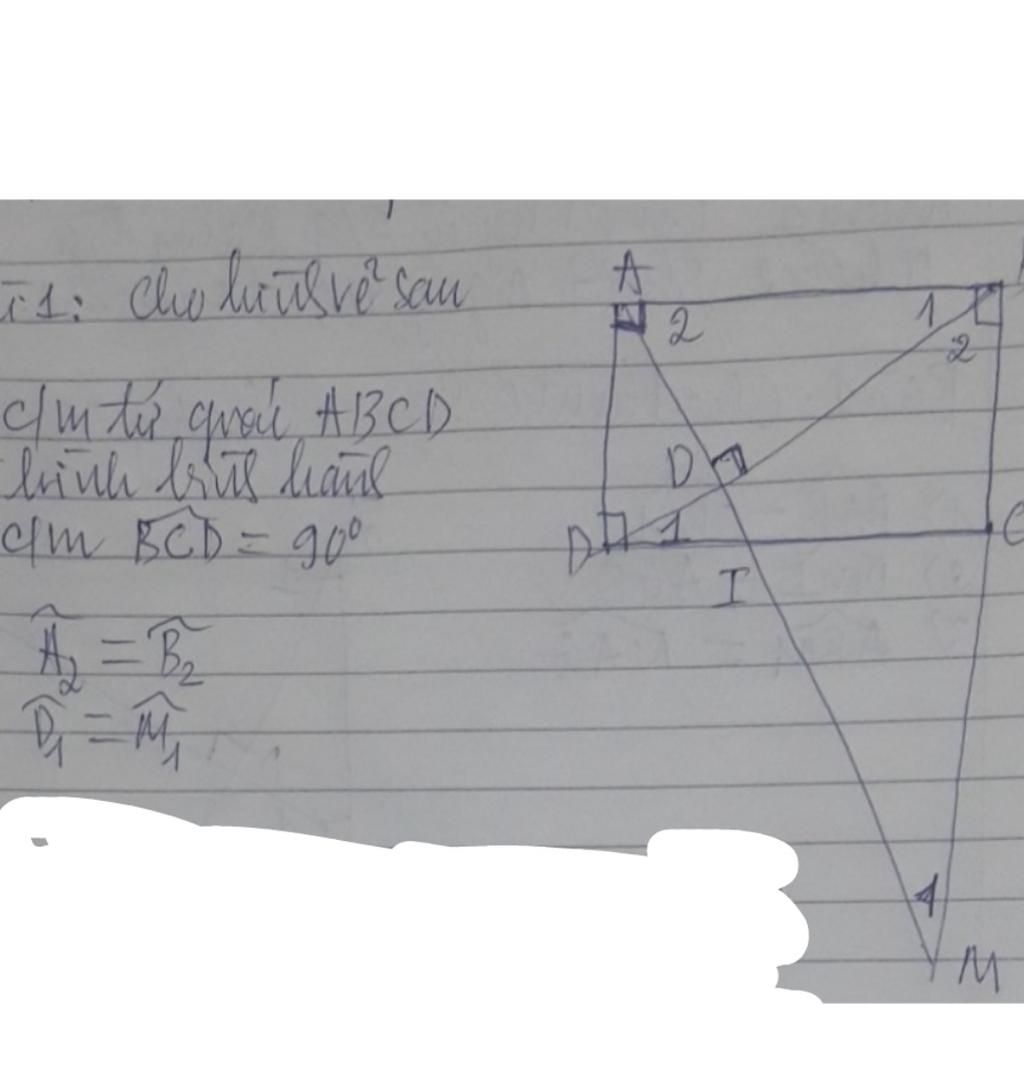 i1: Cho hình vẽ sau
c/m tứ giác ABCD
hình
c/m BCD = 90°
A2 = B2
D1 = M1
A
2
1
2
D
D
1
C
I
1
M